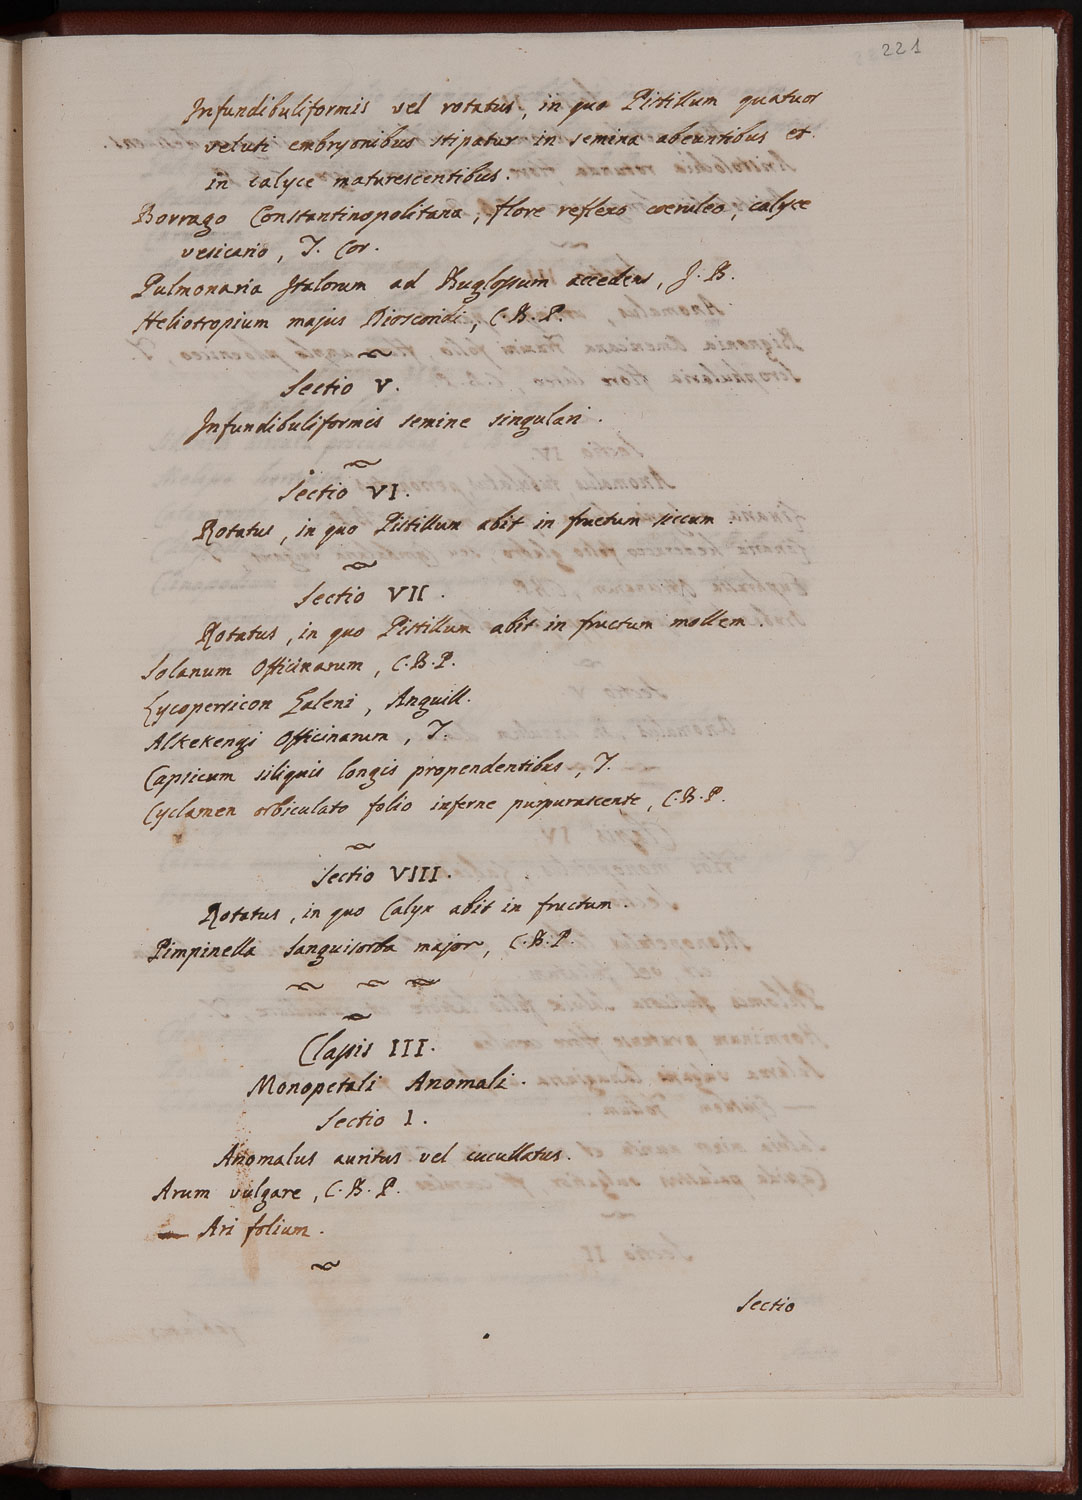 221
Infundibuliformis vel rotatus, in quo Pistillum quatuor
veluti embryonibus stipatur in semina abeuntibus et
in calyce maturescentibus.
Borrago Constantinopolitana, flore reflexo coeruleo, calyce
vesicario, T. Cor.
Pulmonaria Italorum ad Buglossum accedens, J. B.
Heliotropium majus Dioscoridi, C. B. P.
Sectio V.
Infundibuliformis semine singulari.
Sectio VI.
Rotatus, in quo Pistillum abit in fructum siccum.
Sectio VII.
Rotatus, in quo Pistillum abit in fructum mollem.
Solanum Officinarum, C. B. P.
Lycopersicon Galeni, Anguill.
Alkekengi Officinarum, T.
Capsicum siliquis longis propendentibus, T.
Cyclamen orbiculato folio inferne purpurascente, C. B. P.
Sectio VIII.
Rotatus, in quo Calyx abit in fructum.
Pimpinella Sanguisorba major, C. B. P.
Classis III.
Monopetali Anomali.
Sectio I.
Anomalus auritus vel cucullatus.
Arum vulgare, C. B. P.
— Ari folium.
Sectio